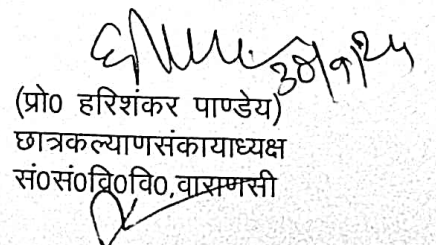 30/9/24
(प्रो0 हरिशंकर पाण्डेय)
छात्रकल्याणसंकायाध्यक्ष
सं0सं0वि0वि0,वाराणसी